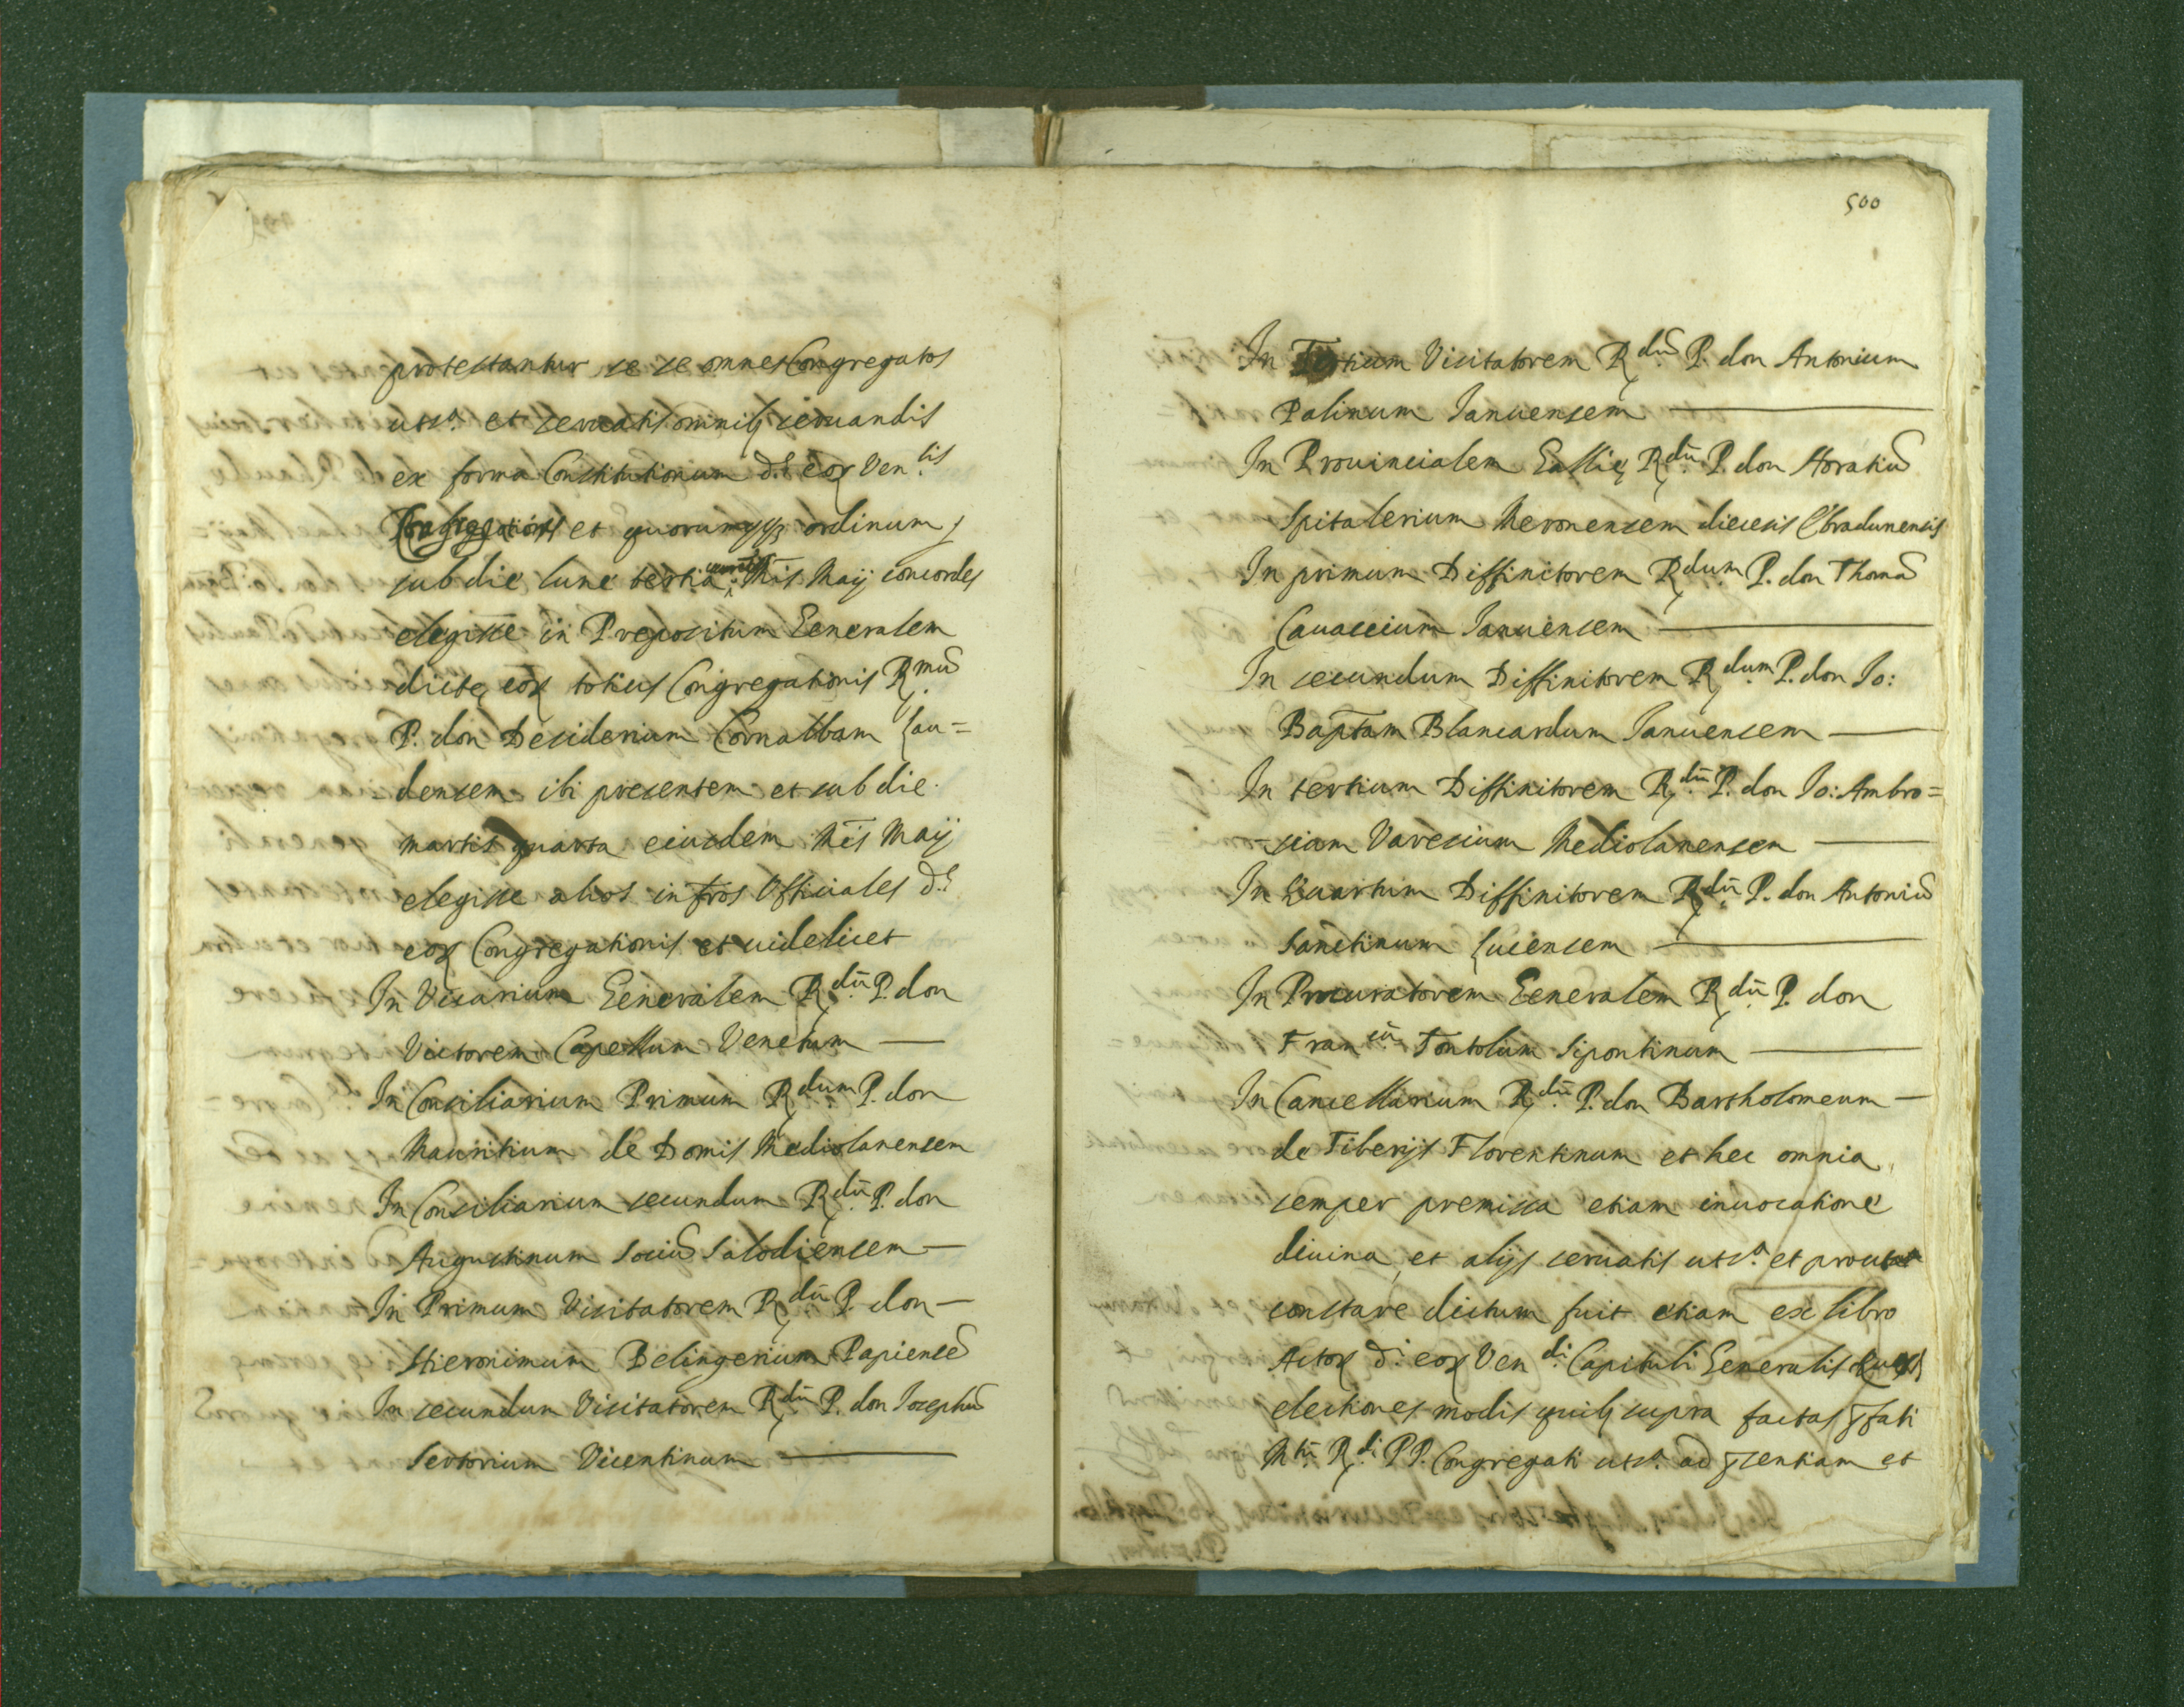 protestantur se se omnes Congregatos
uts.a et seruatis omnib; seruandis
ex forma Constitutionum d.e eor Ven.lis
et quorumcumq; ordinum
sub die lune tertia Mis Maij concordes
elegisse in Prepositum Generalem
dicte eor totius Congregationis R.mu
P. don Desiderium Cornalbam Lau=
densem ibi presentem et sub die
martis quarta eiusdem Mis Maij
elegisse alios infros Officiales d.e
eor Congregationis et uidelicet
In Vicarium Generalem R.dū P. don
Victorem Capellum Venetum —
In Consiliarium Primum R.dum P. don
Mauritium de Domis Mediolanensem
In Consiliarium secundum R.dū P. don
Augustinum Sociu Salodiensem —
In Primum Visitatorem R.dū P. don —
Hieronimum Belingerium Papiense
In secundum Visitatorem R.dū P. don Iosephu
Sertorium Vicentinum —
500
In Tertium Visitatorem R.dū P. don Antonium
Palinum Ianuensem —
In Prouincialem Gallie R.dū P. don Horatiu
Spitalerium Meronensem diecesis Ebradunensis
In primum Diffinitorem R.dum P. don Thoma
Cauassium Ianuensem —
In secundum Diffinitorem R.dum P. don Io:
Baptam Blancardum Ianuensem —
In tertium Diffinitorem R.dū P. don Io: Ambro=
sium Varesium Mediolanensem —
In Quartum Diffinitorem R.dū P. don Antoniu
Sanctinum Lucensem —
In Procuratorem Generalem R.dū P. don
Fran.cū Fontolium Sipontinum —
In Cancellarium R.dū P. don Bartholomeum —
de Tiberijs Florentinum et hec omnia
semper premissa etiam inuocatione
diuina, et alijs seruatis uts.a et prout
constare dictum fuit etiam ex libro
Actor d.i eor Ven.di Capituli Generalis
electiones modis quib; supra factas pfati
M.tū R.di PP. Congregati uts.a ad psentiam et